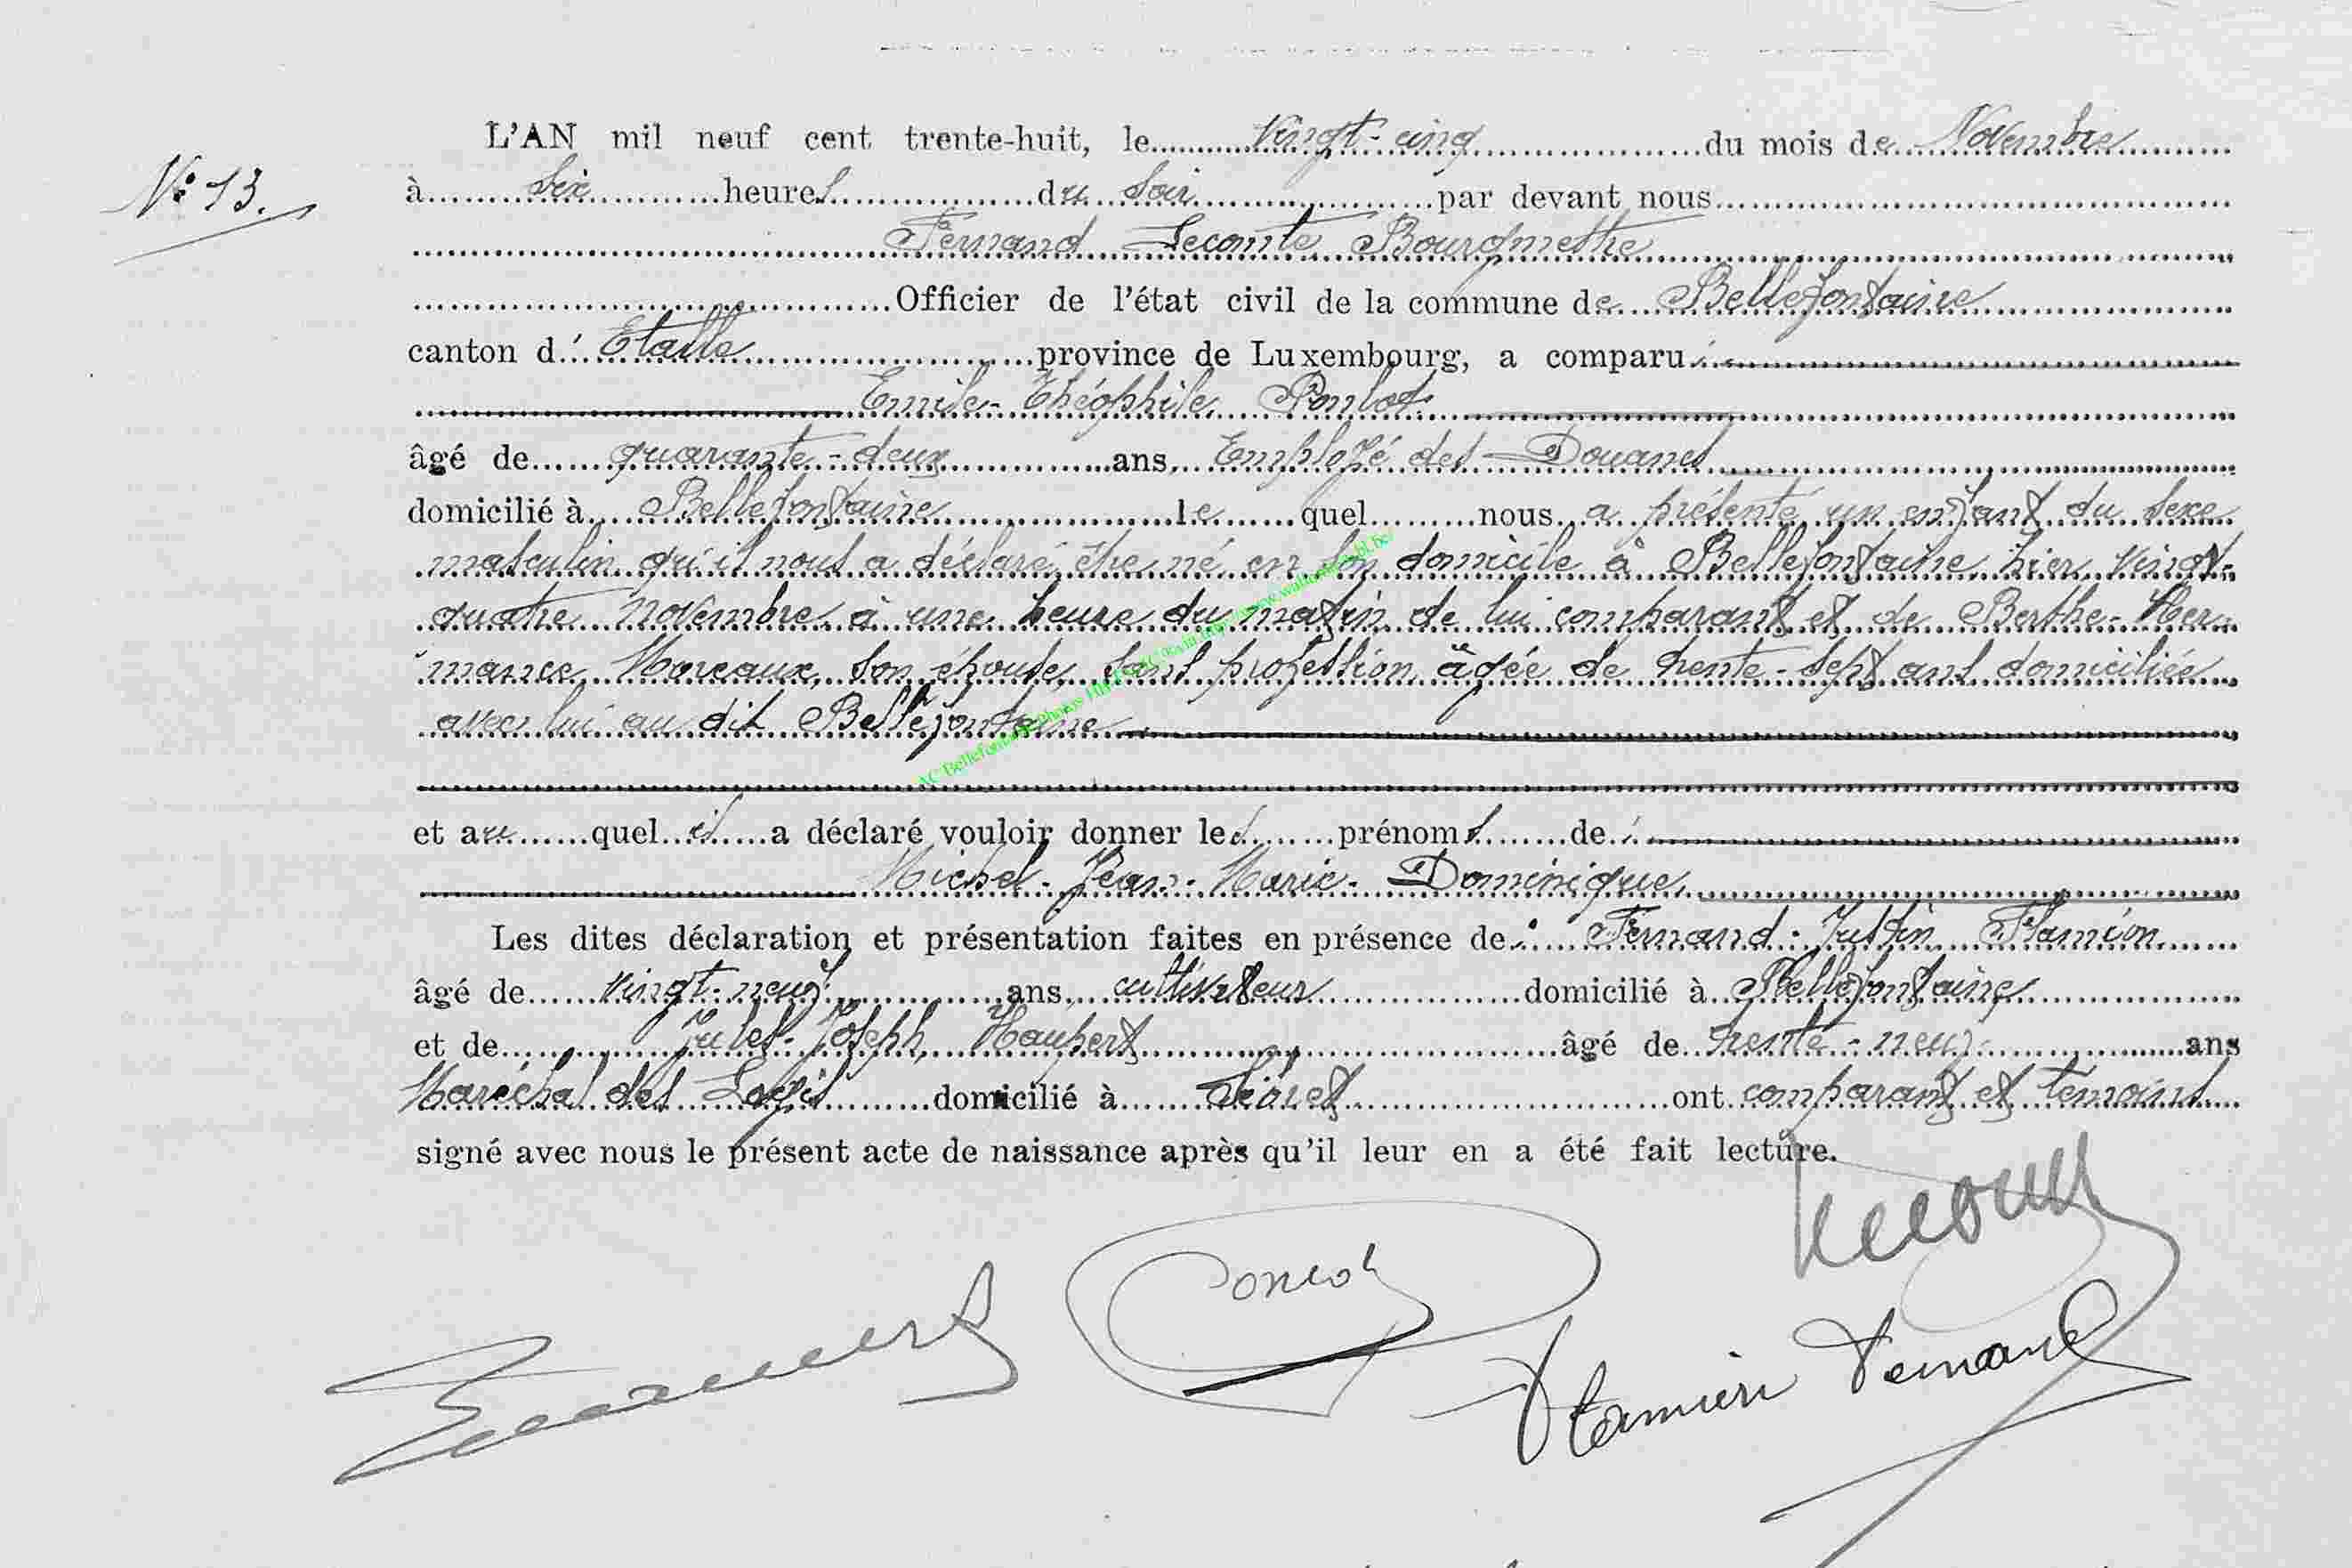 L'AN mil neuf cent trente-huit, le vingt-cinq du mois de Novembre
N° 13.
à six heures du soir par devant nous
Fernand Lecomte Bourgmestre
Officier de l'état civil de la commune de Bellefontaine
canton d' Etalle province de Luxembourg, a comparu :
Emile-Théophile
âgé de quarante-deux ans, Employé des Douanes
domicilié à Bellefontaine lequel nous a présenté un enfant du sexe
masculin qu'il nous a déclaré être né en son domicile à Bellefontaine hier vingt-
quatre novembre à une heure du matin de lui comparant et de Berthe-Her-
mance Moreaux, son épouse, sans profession âgée de trente-sept ans domiciliée
avec lui au dit Bellefontaine.
et auquel il a déclaré vouloir donner les prénoms de :
Michel-Jean-Marie-Dominique.
Les dites déclaration et présentation faites en présence de : Fernand-Justin Flamion
âgé de vingt-neuf ans, cultivateur domicilié à Bellefontaine
et de Jules-Joseph, Haupert âgé de trente-neuf ans
Maréchal des Logis domicilié à ont comparant et témoins
signé avec nous le présent acte de naissance après qu'il leur en a été fait lecture.
Lecomte
Flamion Fernand
AC Bellefontaine Photos